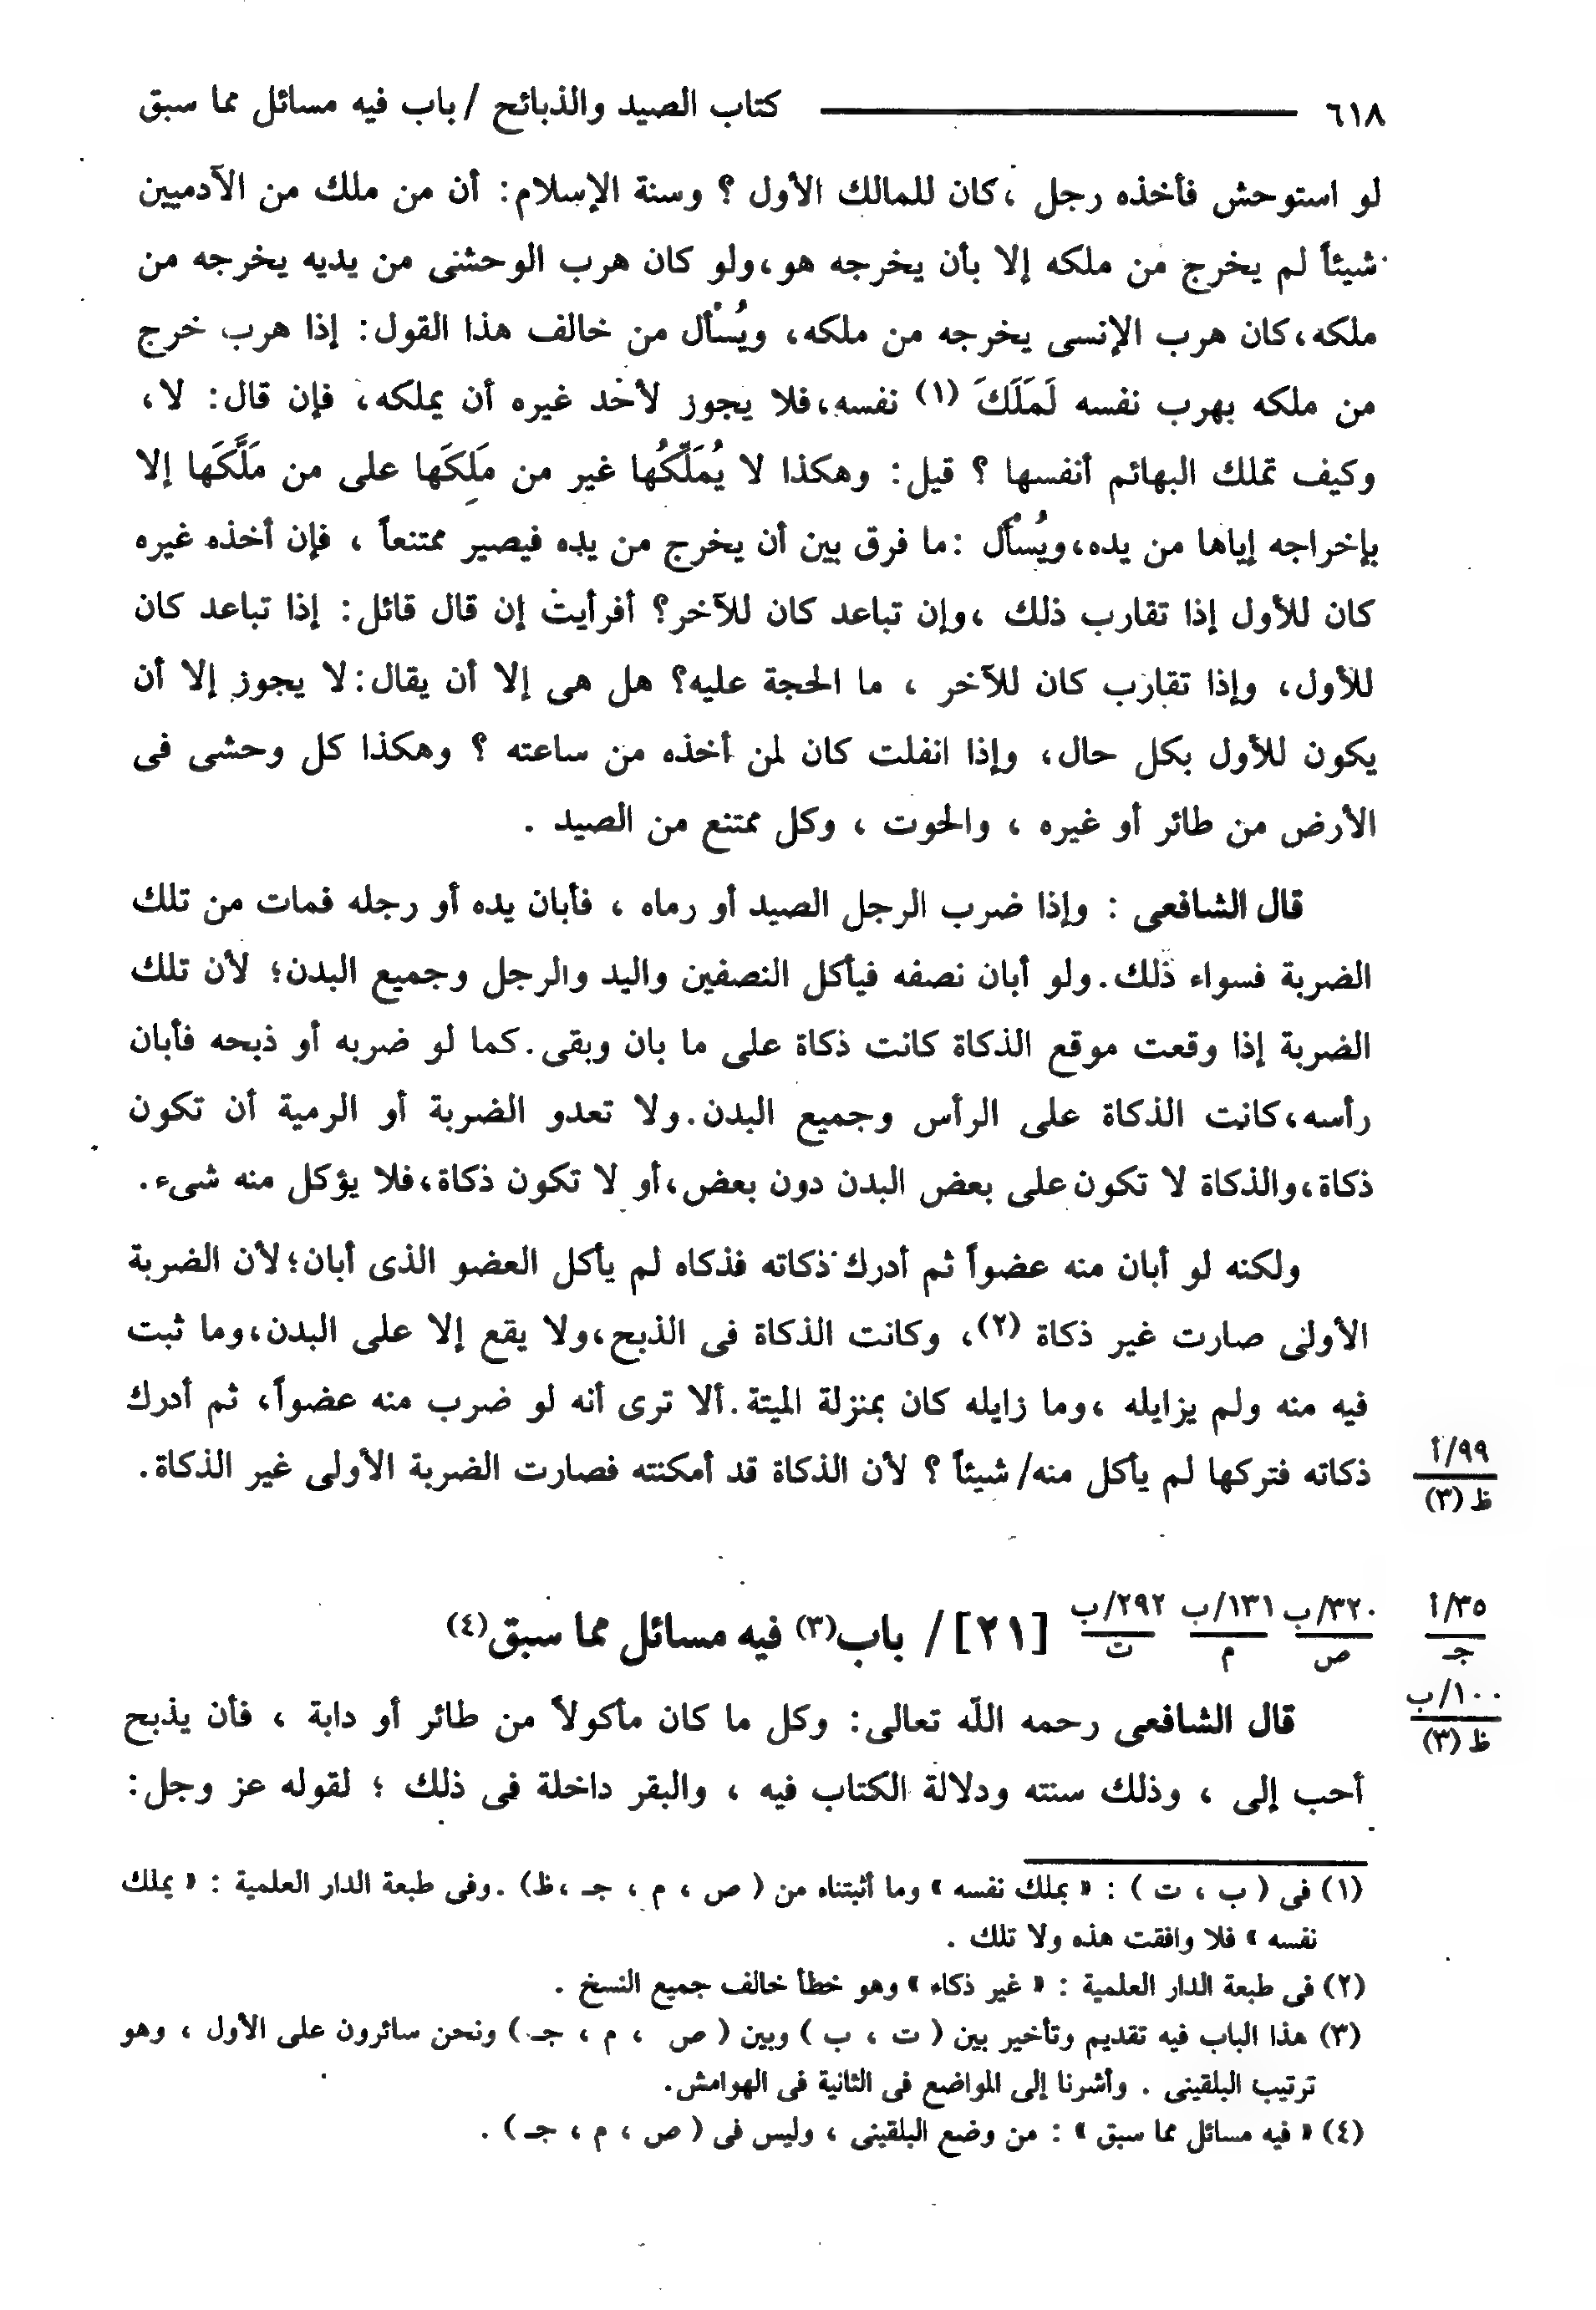 ٦١٨ كتاب الصيد والذبائح / باب فيه مسائل مما سبق
لو استوحش فأخذه رجل ، كان للمالك الأول ؟ وسنة الإسلام: أن من ملك من الآدميين
شيئاً لم يخرج من ملكه إلا بأن يخرجه هو، ولو كان هرب الوحشى من يديه يخرجه من
ملكه، كان هرب الإنسى يخرجه من ملكه، ويُسْأل من خالف هذا القول: إذا هرب خرج
من ملكه بهرب نفسه لَمَلَكَ (١) نفسه، فلا يجوز لأحد غيره أن يملكه، فإن قال: لا،
وكيف تملك البهائم أنفسها ؟ قيل: وهكذا لا يُمَلِّكُها غير من مَلِكَها على من مَلَّكَها إلا
بإخراجه إياها من يده، ويُسْأل : ما فرق بين أن يخرج من يده فيصير ممتنعاً ، فإن أخذه غيره
كان للأول إذا تقارب ذلك ، وإن تباعد كان للآخر؟ أفرأيت إن قال قائل: إذا تباعد كان
للأول، وإذا تقارب كان للآخر ، ما الحجة عليه؟ هل هى إلا أن يقال: لا يجوز إلا أن
يكون للأول بكل حال، وإذا انفلت كان لمن أخذه من ساعته ؟ وهكذا كل وحشى فى
الأرض من طائر أو غيره ، والحوت ، وكل ممتنع من الصيد .
قال الشافعى : وإذا ضرب الرجل الصيد أو رماه ، فأبان يده أو رجله فمات من تلك
الضربة فسواء ذلك. ولو أبان نصفه فيأكل النصفين واليد والرجل وجميع البدن؛ لأن تلك
الضربة إذا وقعت موقع الذكاة كانت ذكاة على ما بان وبقى. كما لو ضربه أو ذبحه فأبان
رأسه، كانت الذكاة على الرأس وجميع البدن. ولا تعدو الضربة أو الرمية أن تكون
ذكاة، والذكاة لا تكون على بعض البدن دون بعض، أو لا تكون ذكاة، فلا يؤكل منه شىء.
ولكنه لو أبان منه عضواً ثم أدرك ذكاته فذكاه لم يأكل العضو الذى أبان؛ لأن الضربة
الأولى صارت غير ذكاة (٢)، وكانت الذكاة فى الذبح، ولا يقع إلا على البدن، وما ثبت
فيه منه ولم يزايله ، وما زايله كان بمنزلة الميتة. ألا ترى أنه لو ضرب منه عضواً، ثم أدرك
ذكاته فتركها لم يأكل منه/ شيئاً ؟ لأن الذكاة قد أمكنته فصارت الضربة الأولى غير الذكاة.
٩٩/أ
ظ (٣)
٣٥/أ
جـ
٣٢٠/ب
ص
١٣١/ب
م
٢٩٢/ب
ت
[٢١] / باب(٣) فيه مسائل مما سبق(٤)
١٠٠/ب
ظ (٣)
قال الشافعى رحمه الله تعالى: وكل ما كان مأكولاً من طائر أو دابة ، فأن يذبح
أحب إلى ، وذلك سنته ودلالة الكتاب فيه ، والبقر داخلة فى ذلك ؛ لقوله عز وجل:
(١) فى ( ب ، ت ) : « بملك نفسه » وما أثبتناه من ( ص ، م ، جـ ، ظ) . وفى طبعة الدار العلمية : « يملك
نفسه » فلا وافقت هذه ولا تلك .
(٢) فى طبعة الدار العلمية : « غير ذكاء » وهو خطأ خالف جميع النسخ .
(٣) هذا الباب فيه تقديم وتأخير بين ( ت ، ب ) وبين ( ص ، م ، جـ ) ونحن سائرون على الأول ، وهو
ترتيب البلقينى . وأشرنا إلى المواضع فى الثانية فى الهوامش.
(٤) « فيه مسائل مما سبق » : من وضع البلقينى ، وليس فى ( ص ، م ، جـ ) .